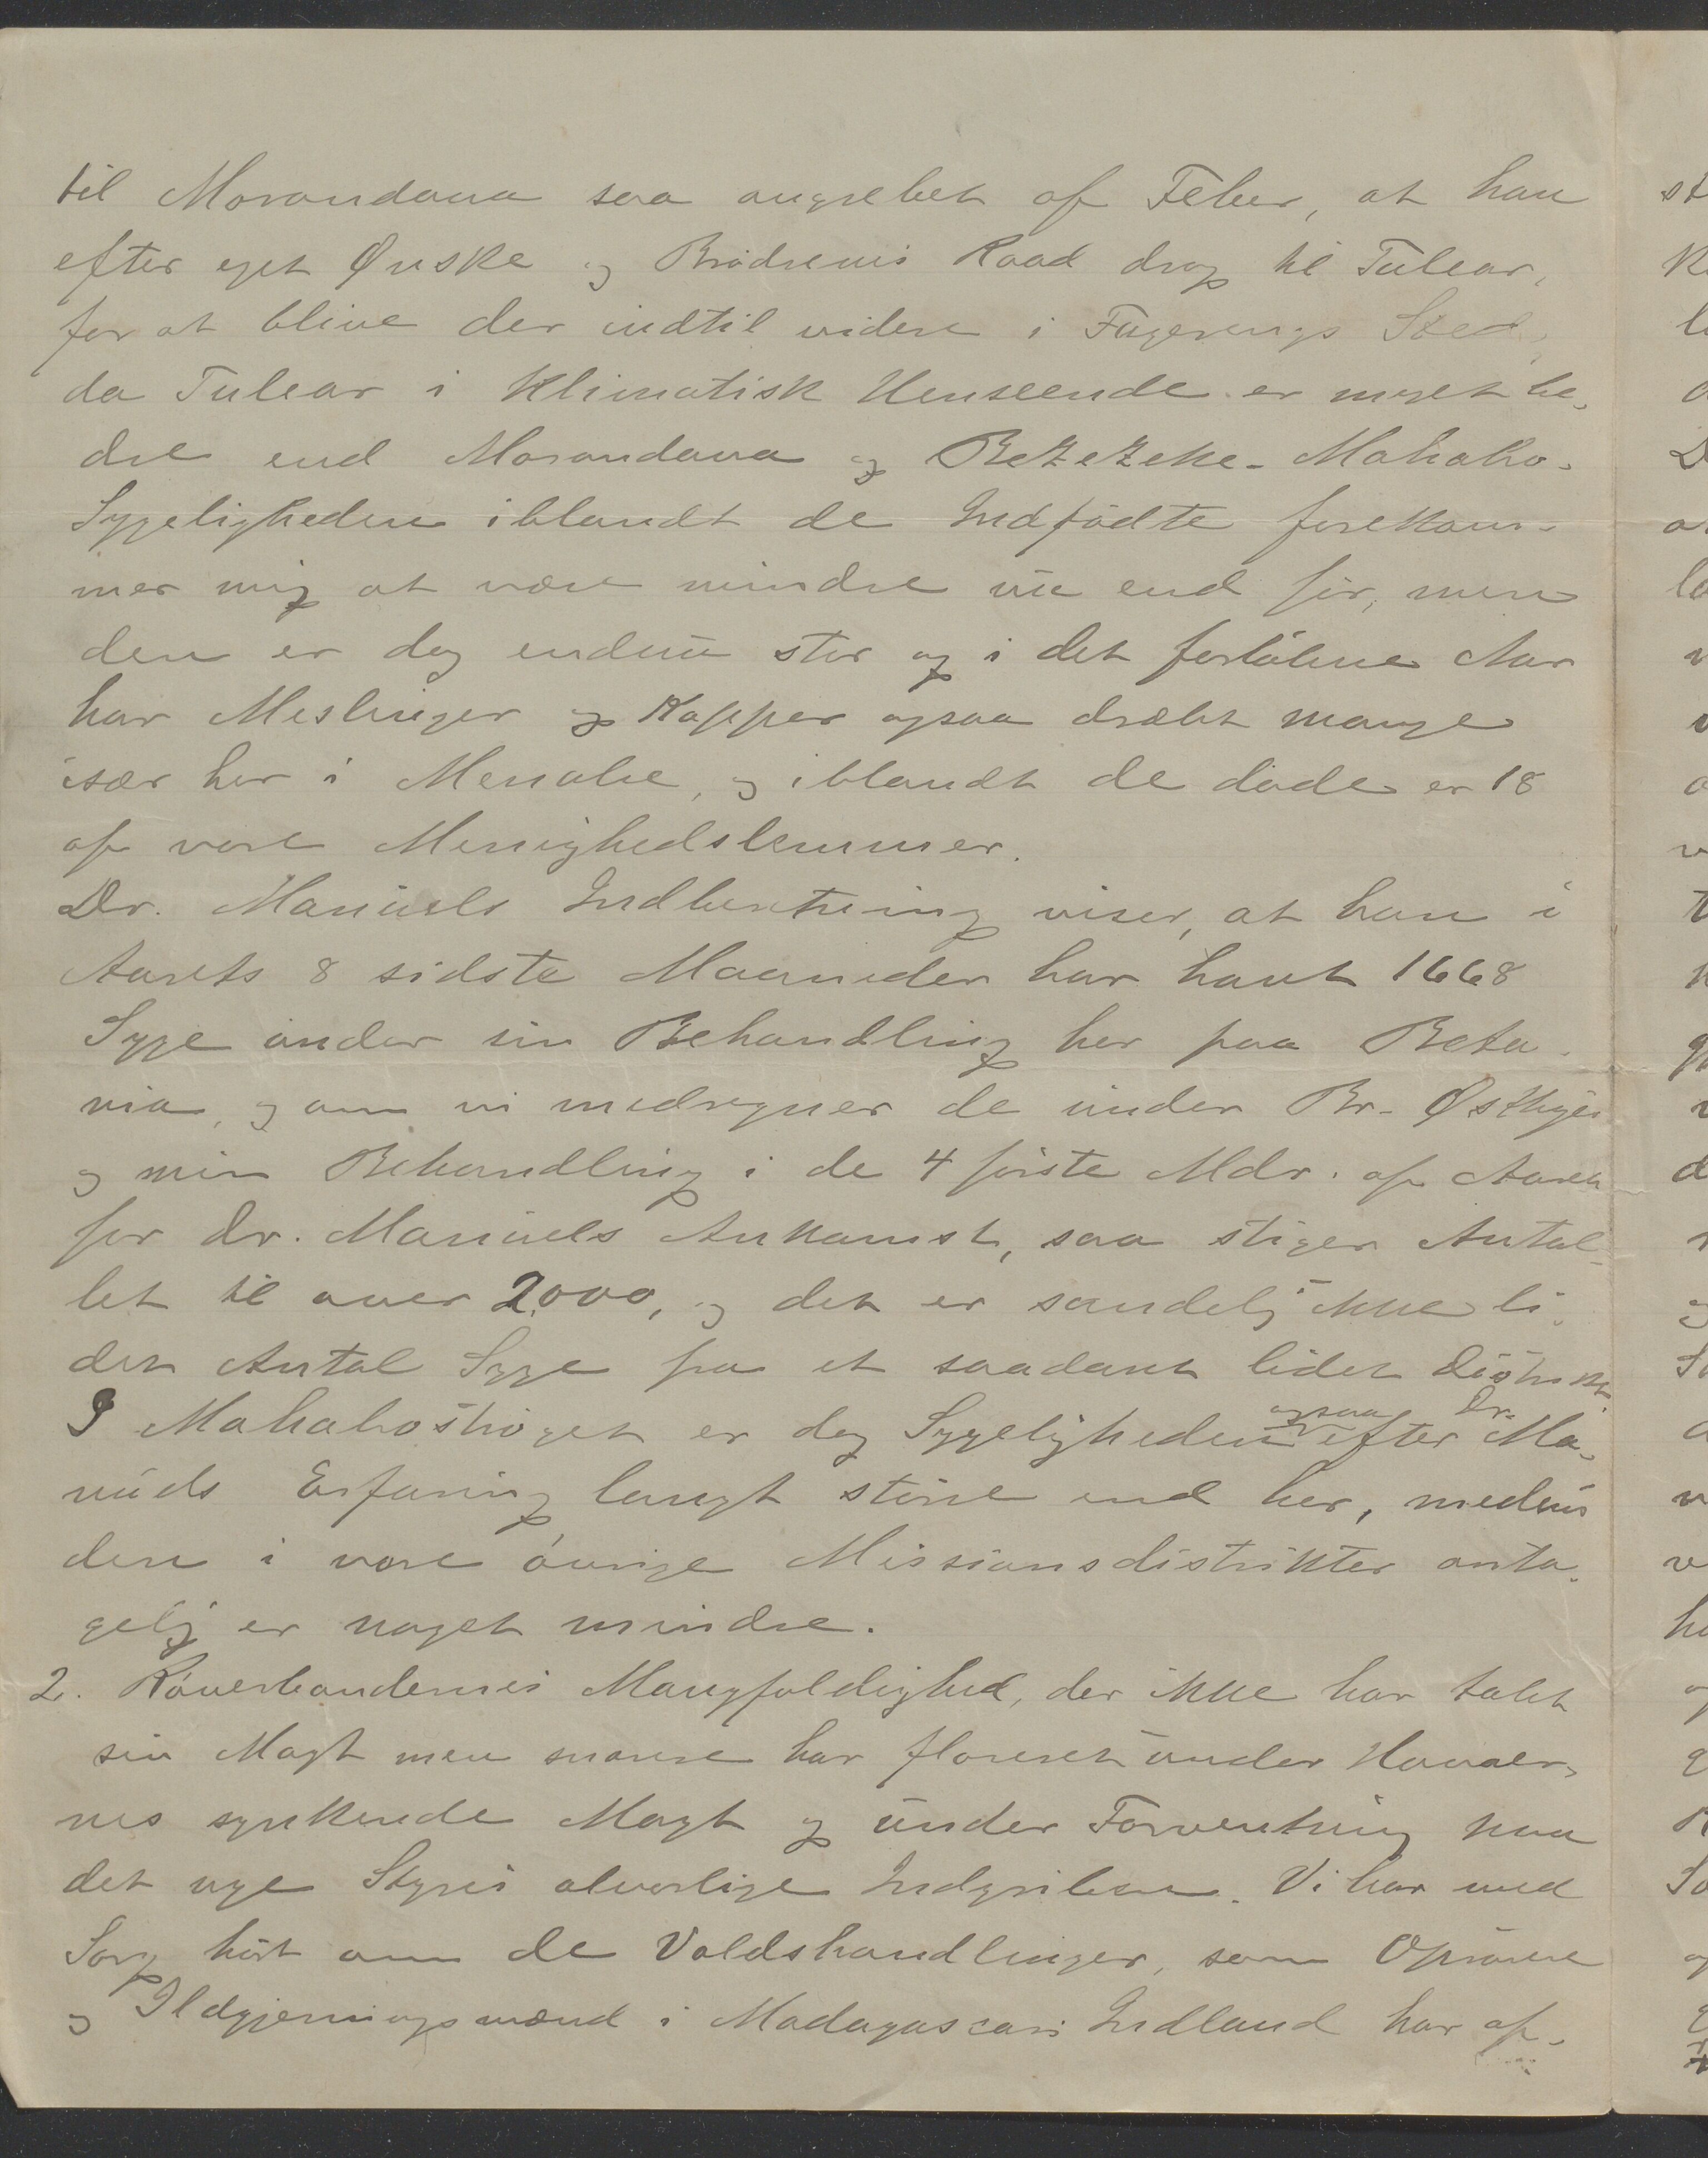 til Morondava saa angrebet af Feber, at han
efter eget Ønske og Brødrenes Raad drog til Tulear,
for at blive der indtil videre i Fagerengs Sted,
da Tulear i klimatisk Henseende er meget be-
dre end Morondava og Betzezeke-Mahabo.
Sygeligheden iblandt de Indfødte forekom-
mer mig at være mindre nu end før, men
den er dog endnu stor og i det forløbne Aar
har Meslinger og Kopper ogsaa dræbt mange
især her i Menabe, og iblandt de døde er 18
af vore Menighedslemmer.
Dr. Manuels Indberetning viser, at han i
Aarets 8 sidste Maaneder har havt 1668
Syge under sin Behandling her paa Beta-
nia, og om vi medregner de under Br. Østbyes
og min Behandling i de 4 første Mdr. af Aaret
før Dr. Manuels Ankomst, saa stiger Antal-
let til over 2000, og det er sandelig ikke li-
det Antal Syge fra et saadant lidet Distrikt.
I Mahabostrøget er dog Sygeligheden ogsaa efter Dr. Ma-
nuels Erfaring langt større end her, medens
den i vore øvrige Missionsdistrikter anta-
gelig er noget mindre.
2. Røverbandernes Mangfoldighed, der ikke har tabt
sin Magt men snarere har floreret under Hovaer-
nes synkende Magt og under Forventning paa
det nye Styres alvorlige Indgriben. Vi har med
Sorg hørt om de Voldshandlinger, som Oprørere
og Ildgjerningsmænd i Madagascars Indland har af-